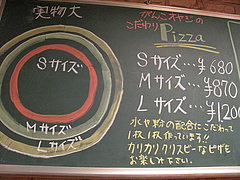 実物大
Sサイズ
Mサイズ
Lサイズ
がんこオヤジの
こだわり Pizza
Sサイズ…¥680
Mサイズ…¥870
Lサイズ…¥1200
水や粉の配合にこだわって
1枚1枚作っています!!
カリカリクリスピーなピザを
お楽しみ下さい。